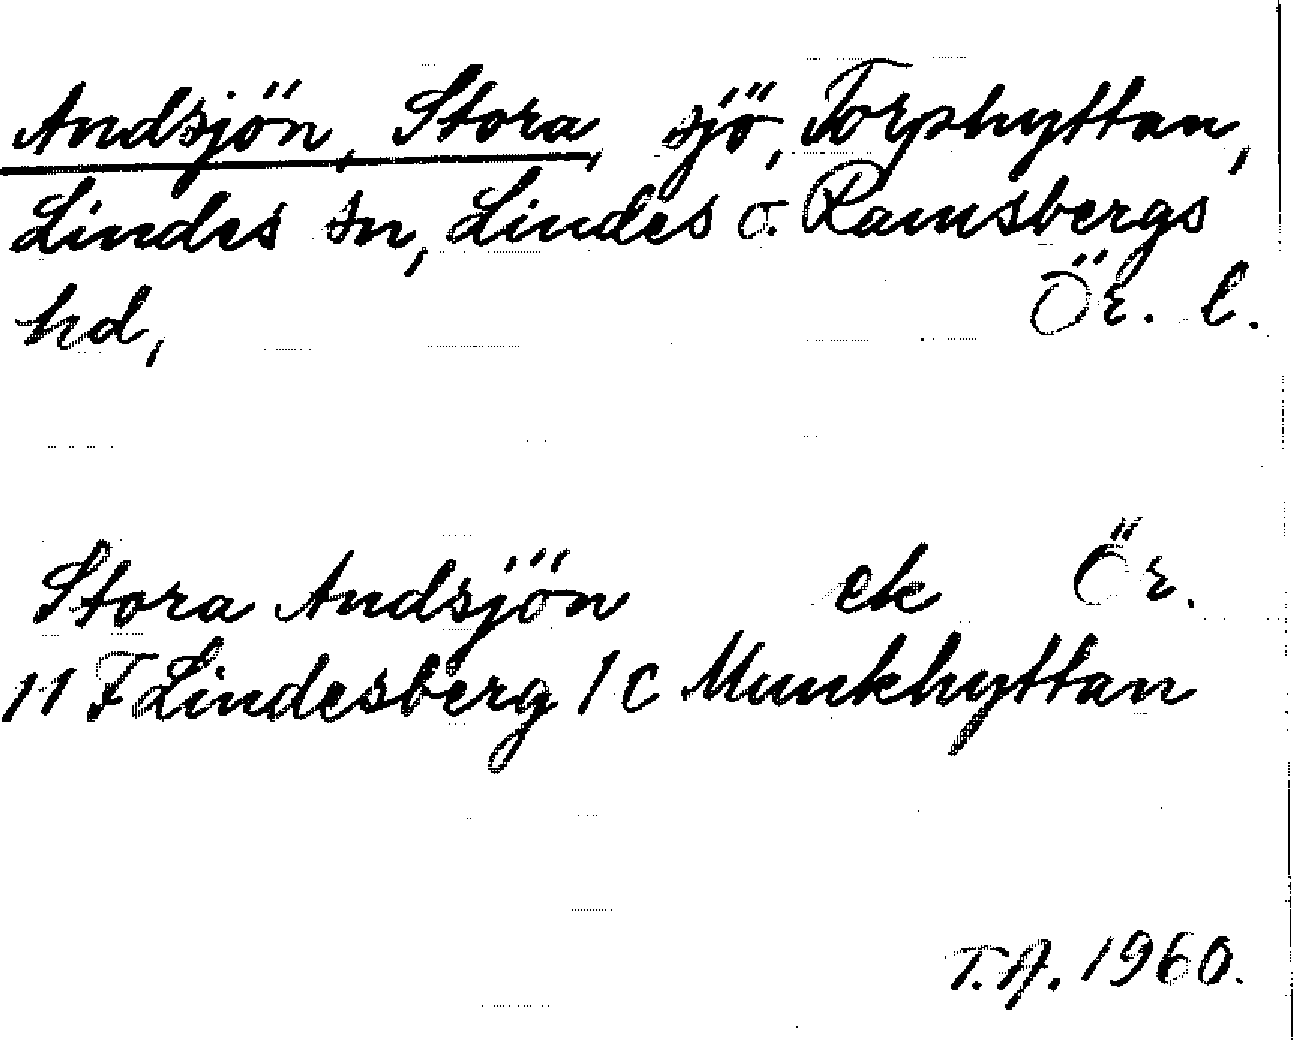 Andsjön, Stora, sjö, Torphyttan,
Lindes sn, Lindes o. Ramsbergs
hd, Ör. l.
Stora Andsjön ek Ör.
11 F Lindesberg 1 c Munkhyttan
T.A. 1960.